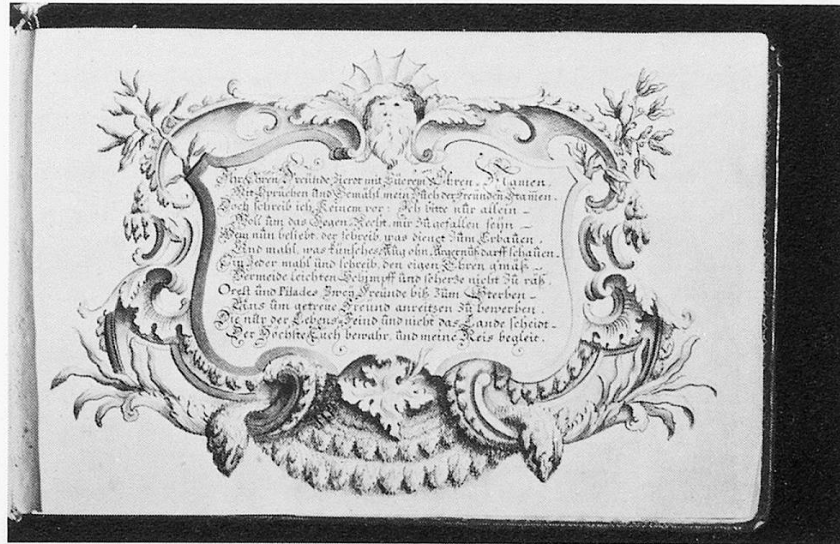 Ihr Ehren Freunde Zieret mit Eüerem Ihren Namen,
Mit Sprüchen und Gemähl mein Buch der Freunden Stamen.
Doch schreib ich Keinem vor: Ich bitte nur allein
Woll um das Gegen-Recht, mir Zu gefallen seÿn
Wem nun beliebt, der schreib, was dienet Zum Erbauen,
Und mahl, was keüsches Aug ohn Ärgernüß darff schauen.
Ein Jeder mahl und schreib, den eigen Ehren gmäß
Vermeide leichten Schimpff und scherze nicht Zu räß.
Orest und Pilades Zweÿ Freunde biß Zum Sterben
Uns um getreüe Freund anreitzen Zu bewerben.
Die nur der Lebens-Feind und nicht das Lande scheidt
Der Höchste Euch bewahr, und meine Reis begleit.